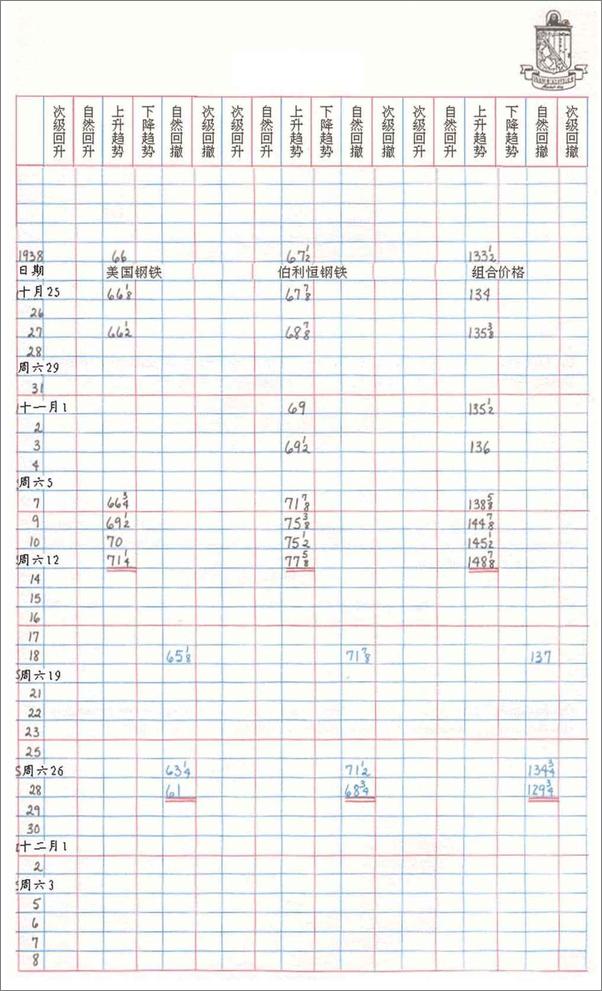 次级回升 自然回升 上升趋势 下降趋势 自然回撤 次级回撤 次级回升 自然回升 上升趋势 下降趋势 自然回撤 次级回撤 次级回升 自然回升 上升趋势 下降趋势 自然回撤 次级回撤
1938 66 67½ 133½
日期 美国钢铁 伯利恒钢铁 组合价格
十月25 66⅛ 67⅞ 134
26
27 66½ 68⅞ 135⅜
28
周六29
31
十一月1 69 135½
2
3 69½ 136
4
周六5
7 66¾ 71⅞ 138⅝
9 69½ 75⅜ 144⅞
10 70 75½ 145½
周六12 71¼ 77⅝ 148⅞
14
15
16
17
18 65⅛ 71⅞ 137
周六19
21
22
23
25
周六26 63¼ 71½ 134¾
28 61 68¾ 129¾
29
30
十二月1
2
周六3
5
6
7
8